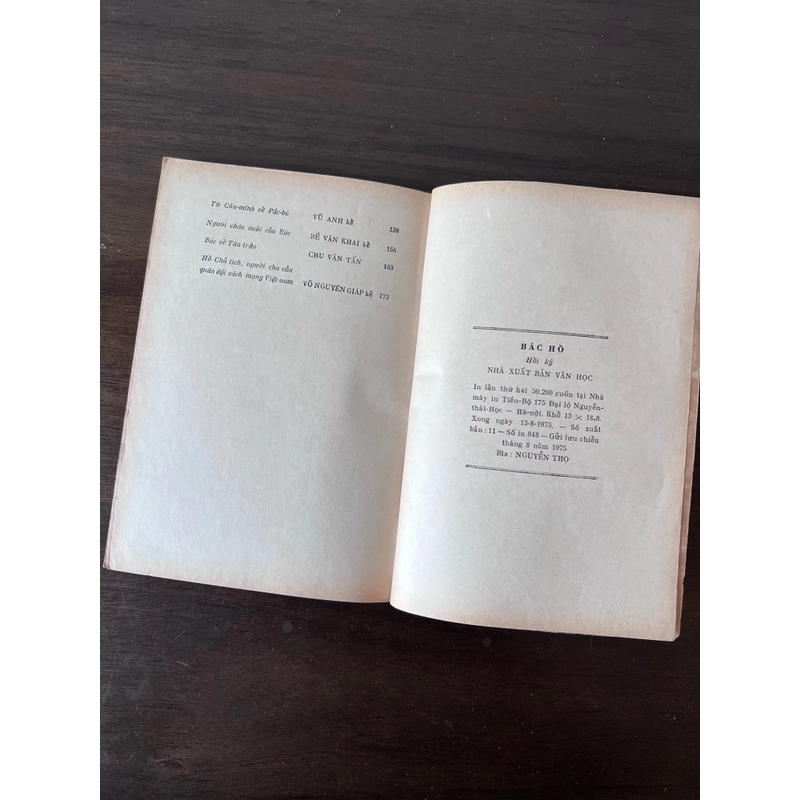 Từ Côn-minh về Pắc-bó
VŨ ANH kể 138
Người cháu nuôi của Bác
BẾ VĂN KHAI kể 156
Bác về Tân trào
CHU VĂN TẤN 163
Hồ Chủ tịch, người cha của
quân đội cách mạng Việt-nam VÕ NGUYÊN GIÁP kể 173
BÁC HỒ
Hồi ký
NHÀ XUẤT BẢN VĂN HỌC
In lần thứ hai 50.200 cuốn tại Nhà
máy in Tiến-Bộ 175 Đại lộ Nguyễn-
thái-Học — Hà-nội. Khổ 13 × 18.8.
Xong ngày 15-8-1975. — Số xuất
bản : 11 — Số in 848 — Gửi lưu chiểu
tháng 8 năm 1975
Bìa : NGUYỄN THỌ